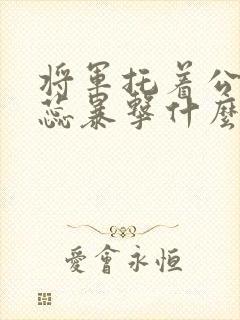 将军托着公
蕊暴撃什麼
愛會永恒